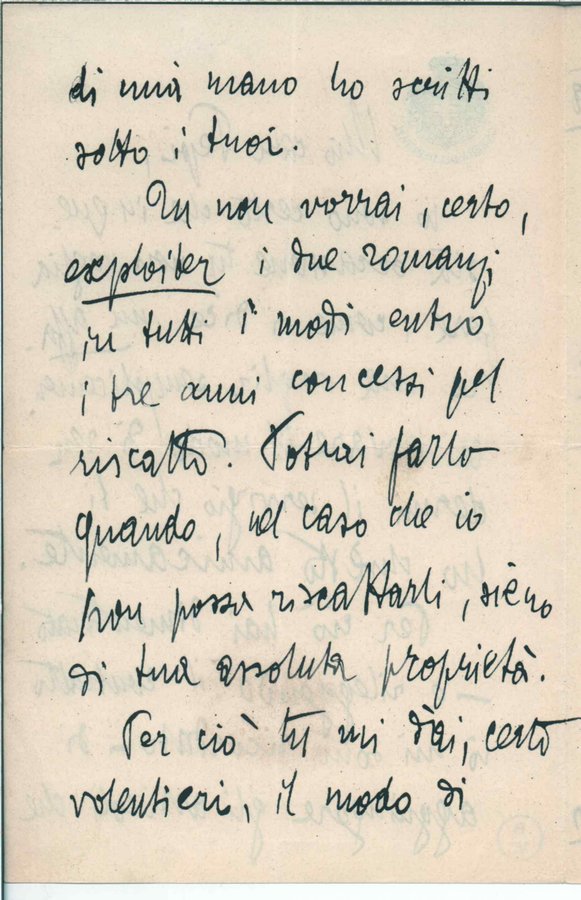 di mia mano ho scritti
sotto i tuoi.
Tu non vorrai, certo,
exploiter i due romanzi
in tutti i modi entro
i tre anni concessi pel
riscatto. Potrai farlo
quando, nel caso che io
non possa riscattarli, sieno
di tua assoluta proprietà.
Per ciò tu mi dài, certo
volentieri, il modo di